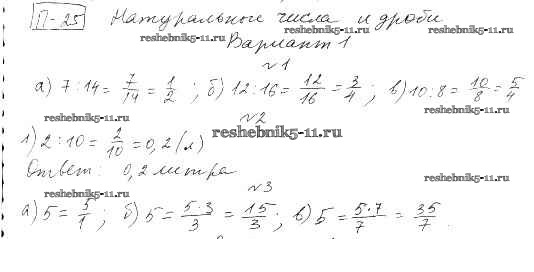 П-25 Натуральные числа и дроби
reshebnik5-11.ru. reshebnik5-11.ru
Вариант 1
№1
а) 7:14= 7/14 = 1/2 ; б) 12:16= 12/16 = 3/4 ; в) 10:8= 10/8 = 5/4
reshebnik5-11.ru №2 reshebnik5-11.ru
1) 2:10= 2/10 =0,2 (л) reshebnik5-11.ru
Ответ: 0,2 литра
reshebnik5-11.ru №3 reshebnik5-11.ru
а) 5= 5/1 ; б) 5= 5·3/3 = 15/3 ; в) 5= 5·7/7 = 35/7